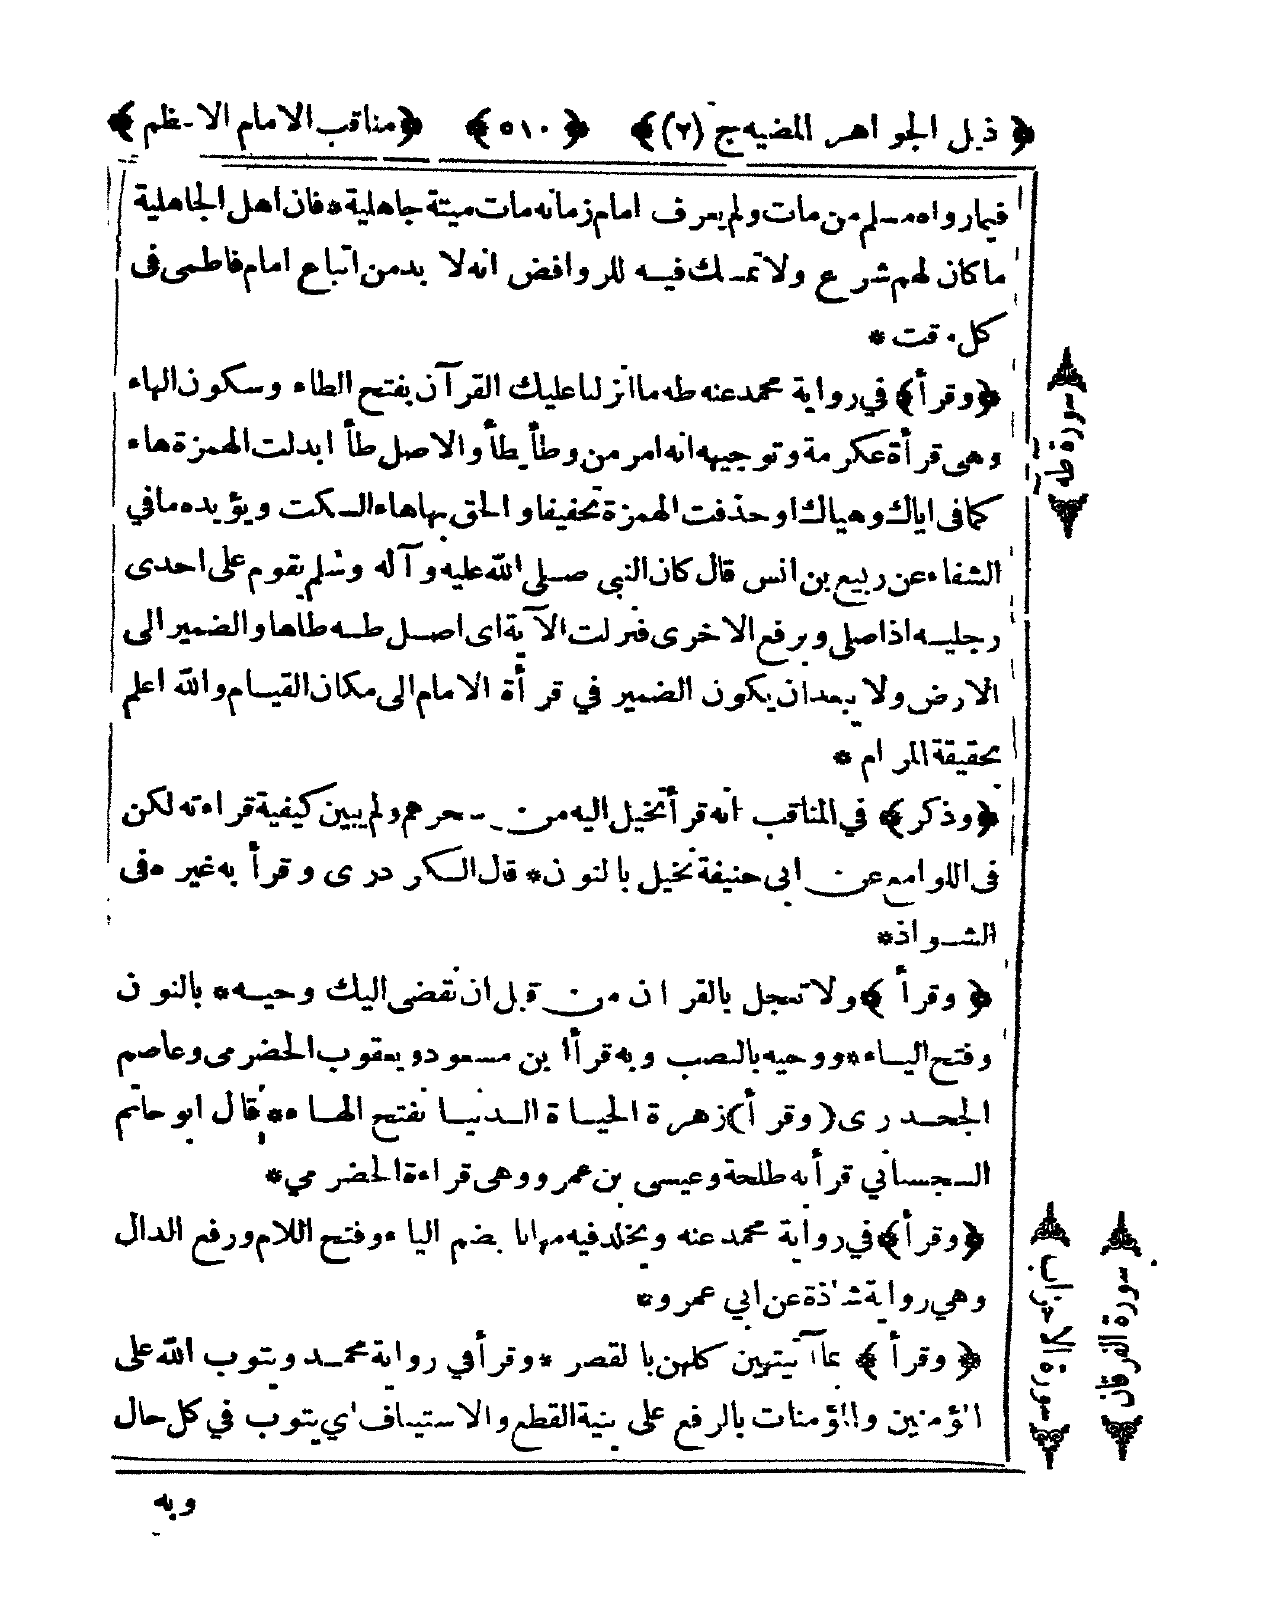 ﴿ ذيل الجواهر المضيه ج (٢) ﴾ ﴿ ٥١٠ ﴾ ﴿ مناقب الامام الاعظم ﴾
فيما رواه مسلم من مات ولم يعرف امام زمانه مات ميتة جاهلية * فان اهل الجاهلية
ما كان لهم شرع ولا تمسك فيه للروافض انه لا بد من اتباع امام فاطمى فى
كل وقت *
﴿ وقرأ ﴾ في رواية محمد عنه طه ما انزلنا عليك القرآن بفتح الطاء وسكون الهاء
وهى قرأة عكرمة وتوجيهه انه امر من وطأ يطأ والاصل طأ ابدلت الهمزة هاء
كما فى اياك وهياك او حذفت الهمزة تخفيفا والحق بها هاء السكت ويؤيده ما في
الشفاء عن ربيع بن انس قال كان النبي صلى الله عليه وآله وسلم يقوم على احدى
رجليه اذا صلى ويرفع الاخرى فنزلت الآية اى اصل طه طاها والضمير الى
الارض ولا يبعد ان يكون الضمير في قرأة الامام الى مكان القيام والله اعلم
بحقيقة المرام *
﴿ وذكر ﴾ في المناقب انه قرأ تخيل اليه من سحرهم ولم يبين كيفية قراءته لكن
فى اللوامع عن ابى حنيفة نخيل بالنون * قال السكر درى وقرأ به غيره فى
الشواذ *
﴿ وقرأ ﴾ ولا تعجل بالقران من قبل ان نقضى اليك وحيه * بالنون
وفتح الياء * ووحيه بالنصب وبه قرأ ابن مسعود ويعقوب الحضرمى وعاصم
الجحدرى ( وقرأ ) زهرة الحياة الدنيا بفتح الهاء * قال ابو حاتم
السجستاني قرأ به طلحة وعيسى بن عمر ووهى قراءة الحضرمي *
﴿ وقرأ ﴾ في رواية محمد عنه ويخلد فيه مهانا بضم الياء وفتح اللام ورفع الدال
وهي رواية شاذة عن ابي عمرو *
﴿ وقرأ ﴾ بما آتيتهن كلهن بالقصر * وقرأ في رواية محمد ويتوب الله على
المؤمنين والمؤمنات بالرفع على بنية القطع والاستيناف اي يتوب في كل حال
وبه
سورة طه
سورة الاحزاب
سورة الفرقان